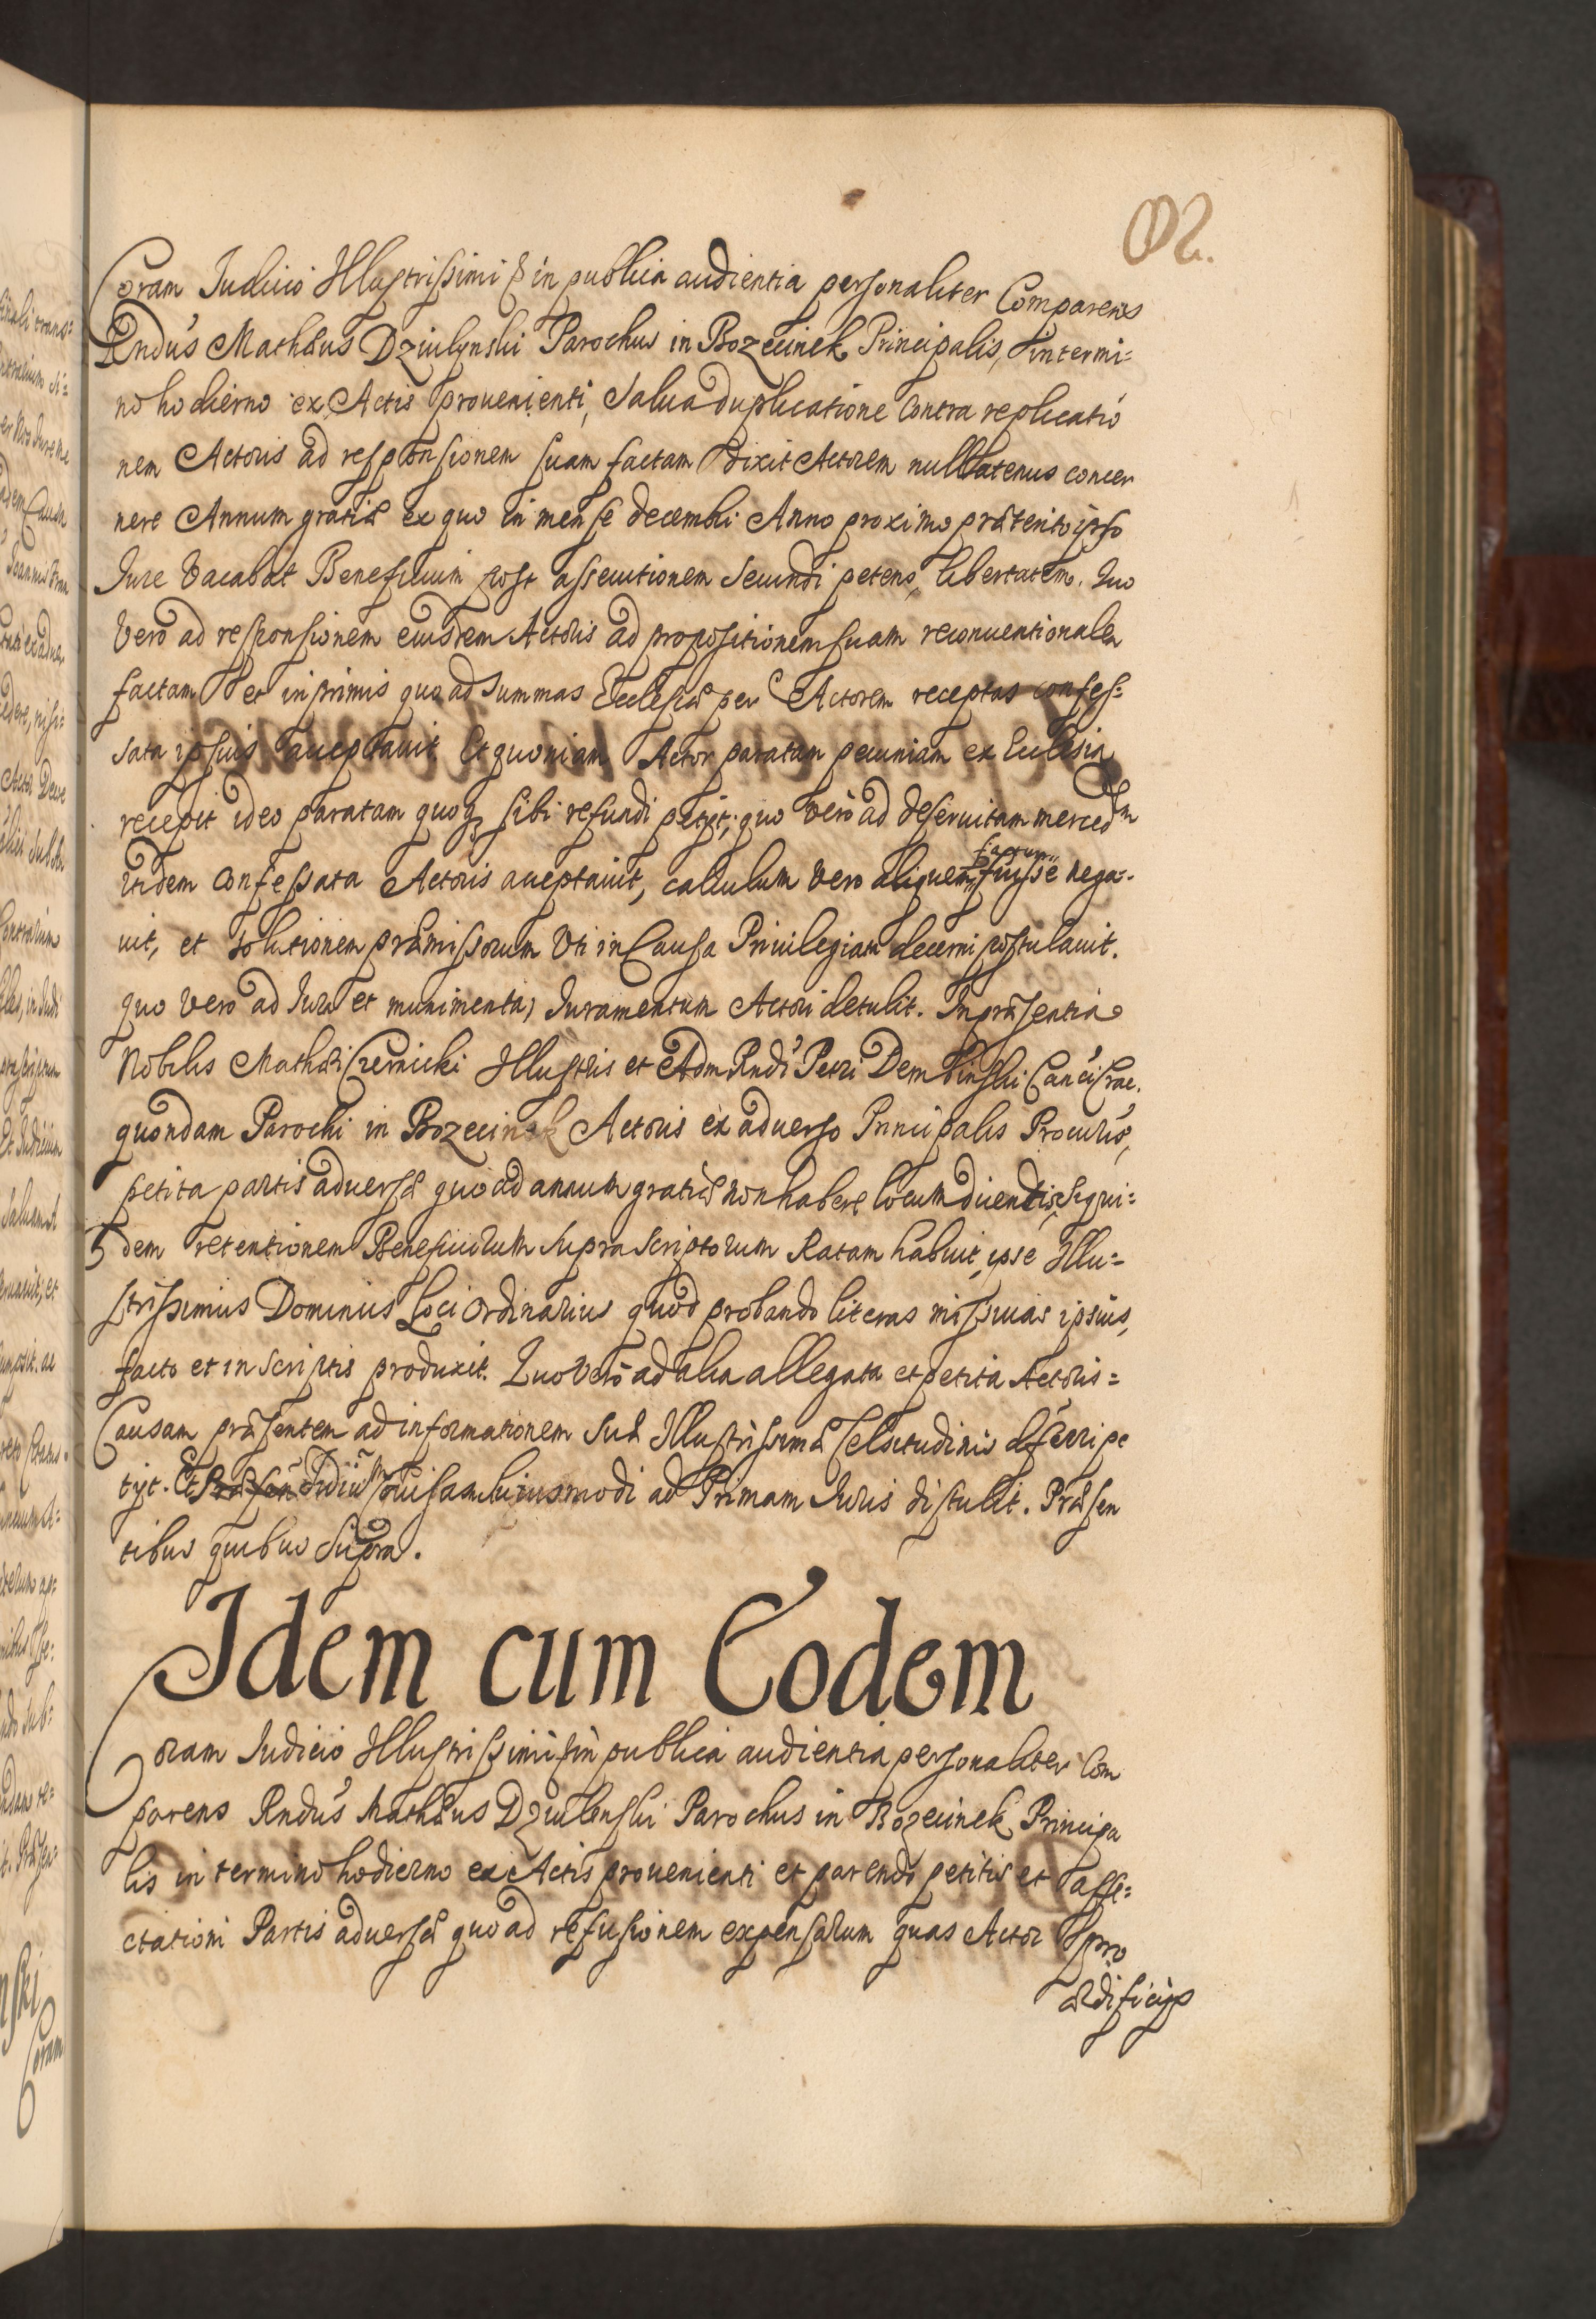 Coram Judicio Illustrissimi & in publica audientia personaliter Comparens
Rndus Mathæus Dziulynski Parochus in Bozecinek Principalis, in termi=
no hodierno ex Actis prouenienti, Salua duplicatione Contra replicatio
nem Actoris ad responsionem suam factam dixit Actorem nullatenus concer
nere Annum gratiæ ex quo in mense decembri Anno proximo præterito ipso
Jure Vacabat Beneficium post assecutionem Secundi petens libertatem. Quo
Vero ad responsionem eiusdem Actoris ad propositionem suam reconuentionalem
factam et inprimis quo ad Summas Ecclesiæ per Actorem receptas confes=
sata ipsius acceptauit. Et quoniam Actor paratam pecuniam ex Ecclesia
recepit ideo paratam quoq sibi refundi petijt; quo vero ad deseruitam merced̃m
itidem Confessata Actoris acceptauit, calculum vero aliquem factum fuisse nega-
uit, et solutionem præmissorum Uti in Causa Priuilegiata decerni postulauit.
quo vero ad Jura et munimenta, Juramentum Actori detulit. In præsentia
Nobilis Mathæi Czernicki Illustris et Adm Rndi Petri Dembinski Canci Crac.
quondam Parochi in Bozecinek Actoris ex aduerso Principalis Procuris,
petita partis aduersæ quo ad annum gratiæ non habere locum dicentis, siqui=
dem retentionem Beneficiorum supra scriptorum Ratam habuit, ipse Illu=
strissimus Dominus Loci Ordinarius quod probando literas missiuas ipsius,
facto et in scriptis produxit. Quo Vero ad alia allegata et petita Actoris=
Causam præsentem ad informationem Suæ Illustrissimæ Celsitudinis deferri pe
tijt. Et Judiũ Causam huiusmodi ad Primam Juris distulit. Præsen
tibus quibus Supra.
Idem cum Eodem
Coram Judicio Illustrissimi & in publica audientia personaliter Com
parens Rndus Mathæus Dziulenski Parochus in Bozecinek Principa
lis in termino hodierno ex Actis prouenienti et parendo petitis et affe=
ctationi Partis aduersæ quo ad refusionem expensarum quas Actor pro
ædificijs